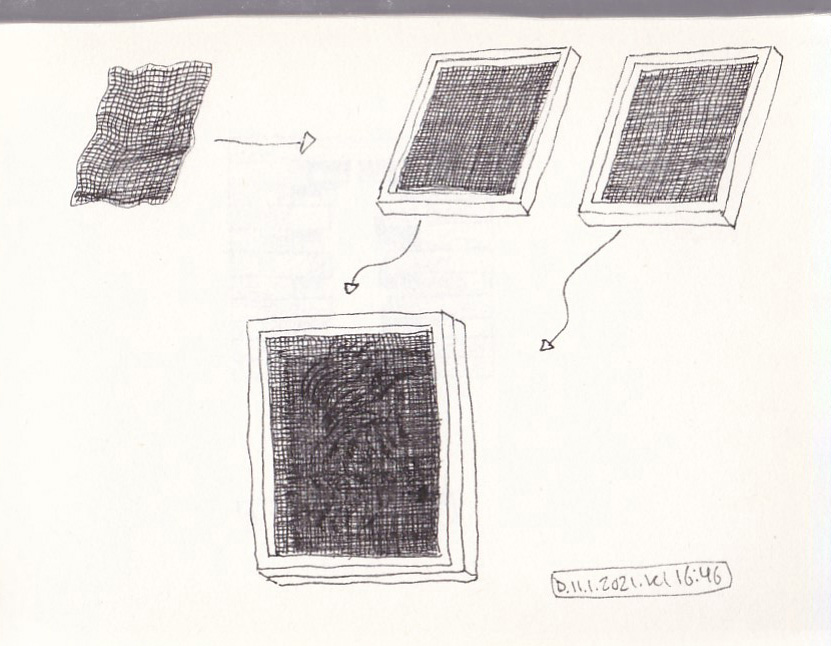 D.11.1.2021.kl 16:46